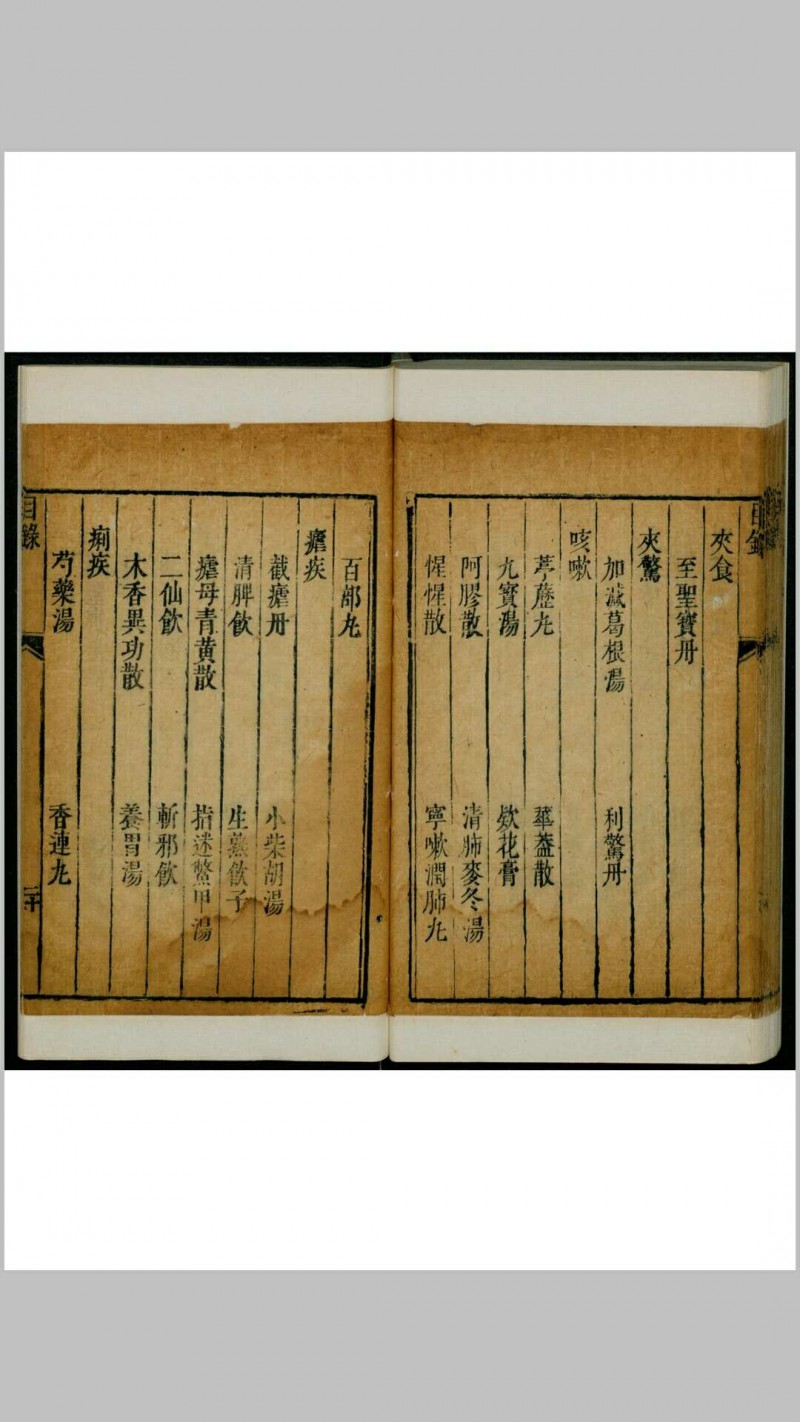 目錄
夾食
至聖寶丹
夾驚
加減葛根湯　利驚丹
咳嗽
葶藶丸　華蓋散
九寶湯　欵花膏
阿膠散　清肺麥冬湯
惺惺散　寧嗽潤肺丸
百部丸
瘧疾
截瘧丹　小柴胡湯
清脾飲　生熟飲子
瘧母青黃散　指迷鱉甲湯
二仙飲　斬邪飲
木香異功散　養胃湯
痢疾
芍藥湯　香連丸
目錄